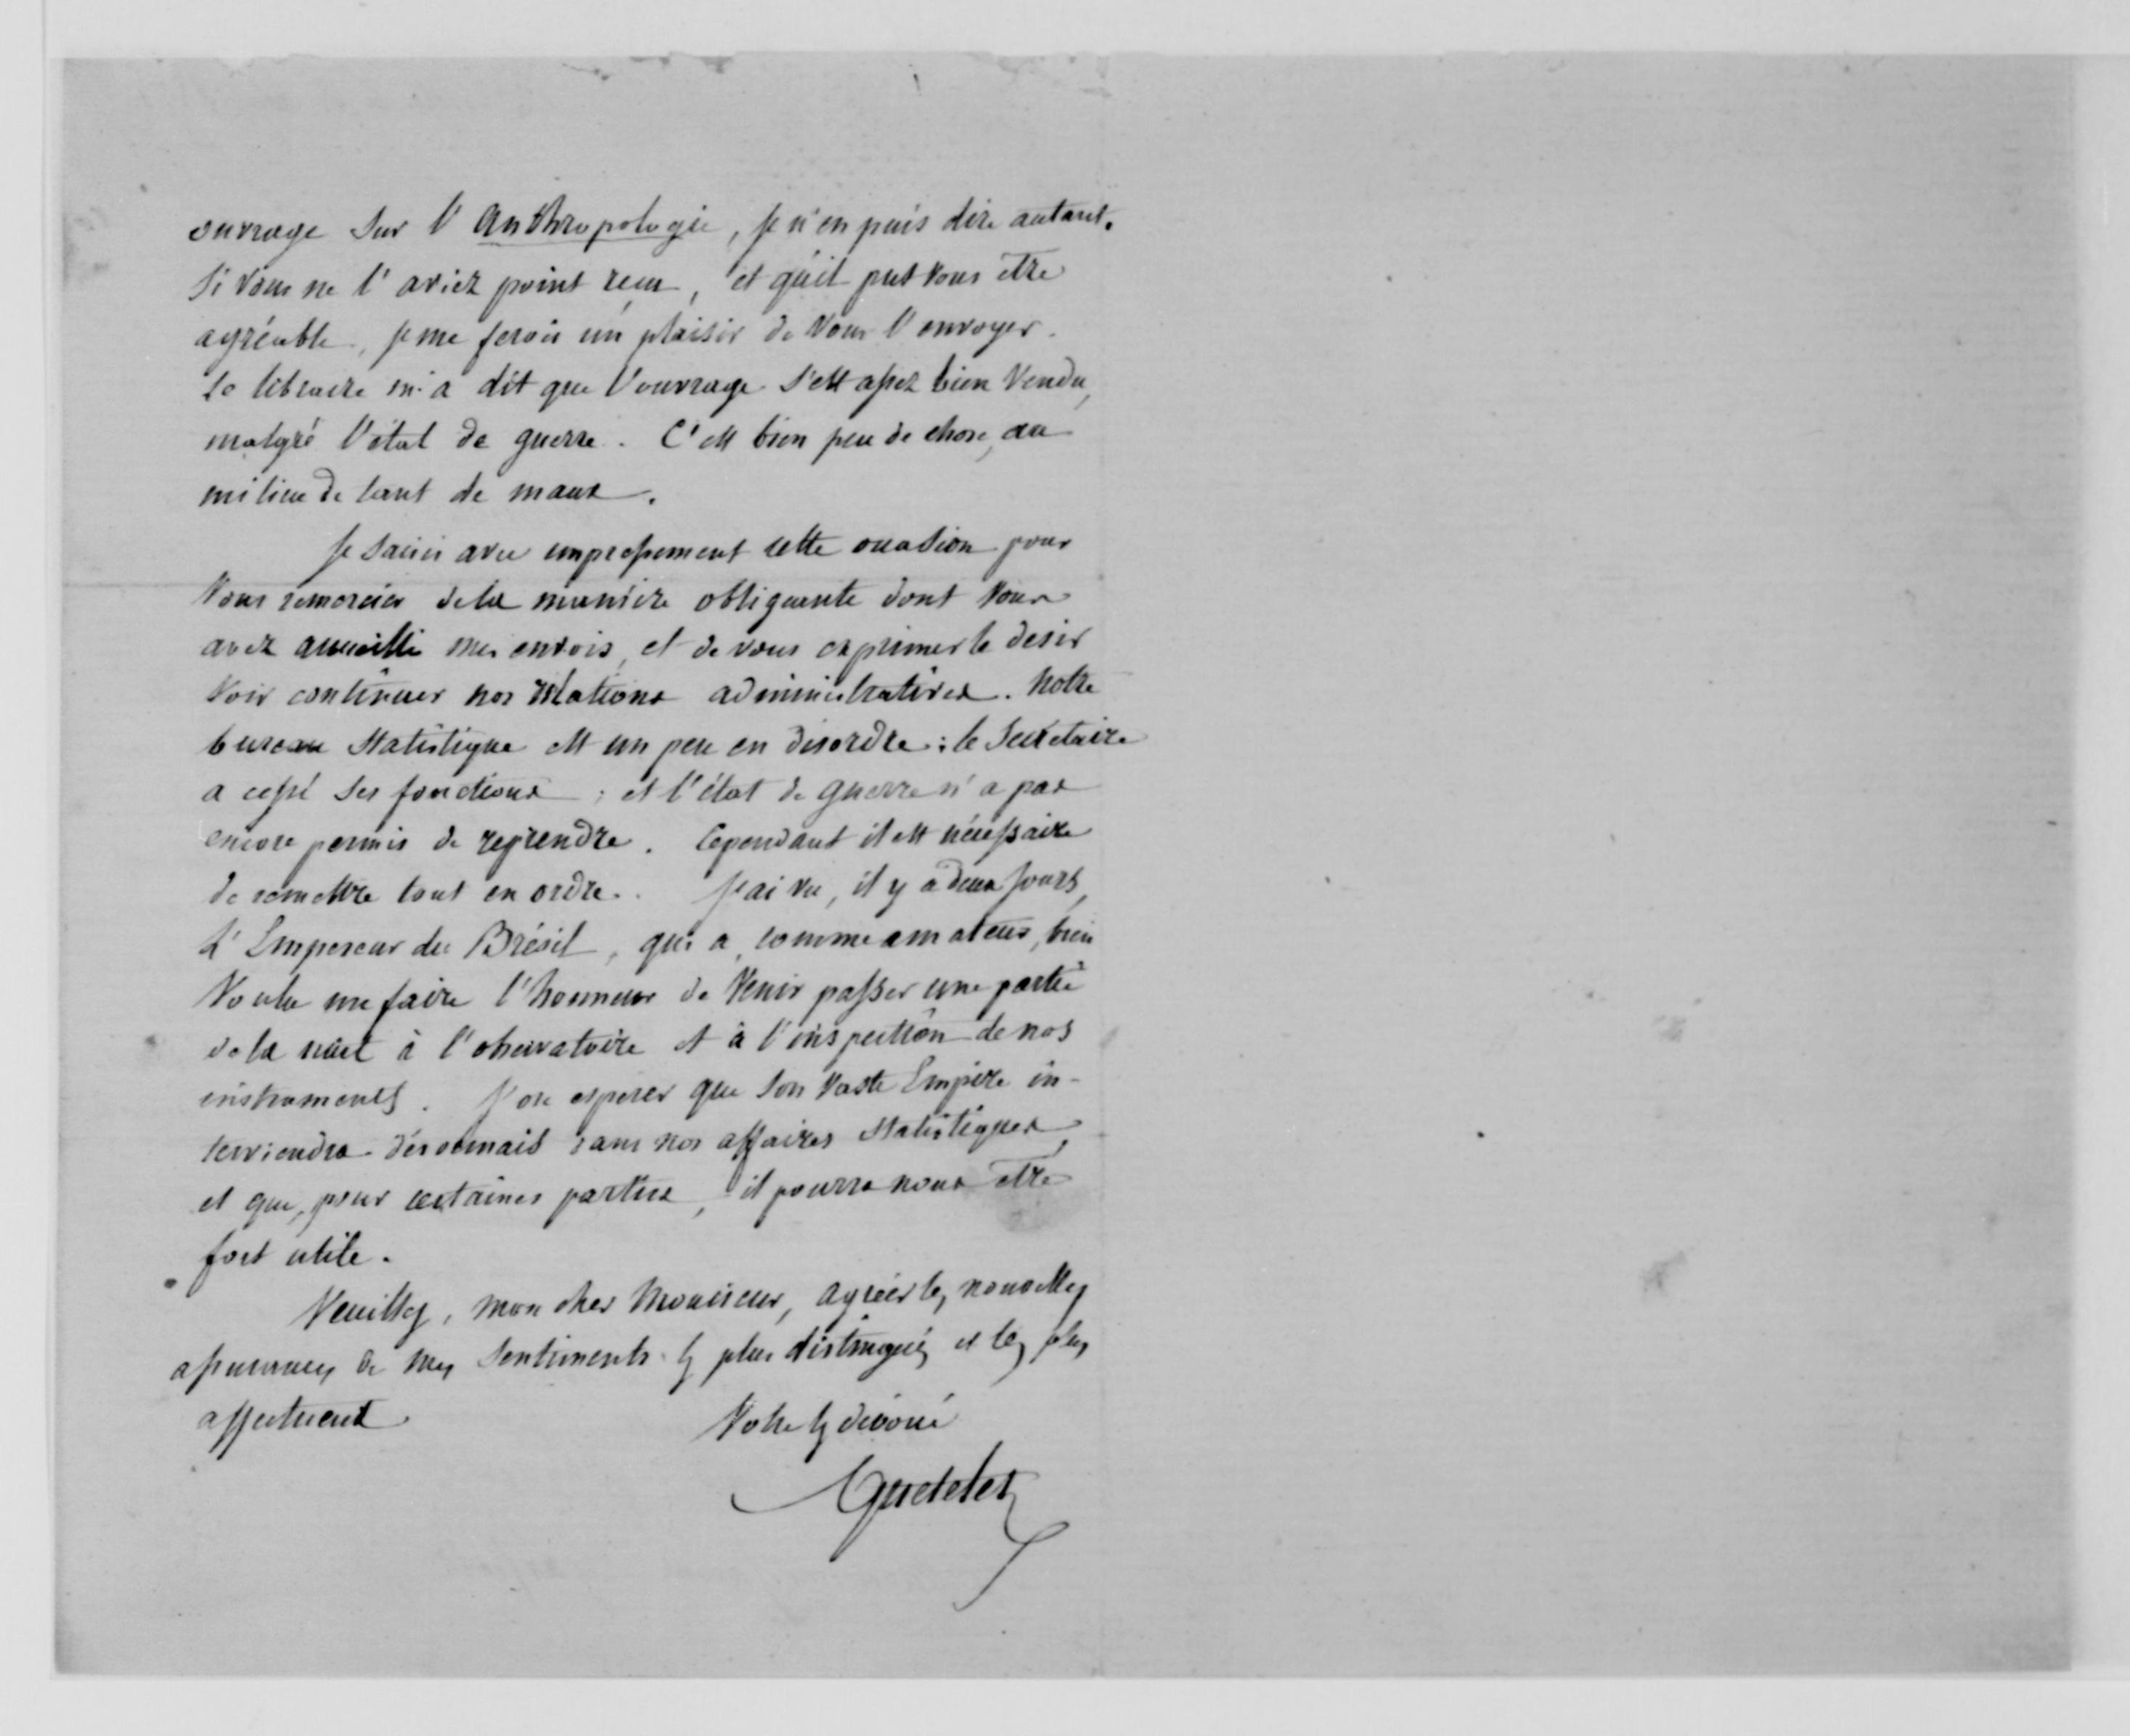 ouvrage sur l'Anthropologie, je n'en puis dire autant.
Si vous ne l'aviez point reçu, et qu'il put vous être
agréable, je me ferais un plaisir de vous l'envoyer.
Le libraire m'a dit que l'ouvrage s'est assez bien vendu,
malgré l'état de guerre. C'est bien peu de chose, au
milieu de tant de maux.
Je saisis avec empressement cette occasion pour
vous remercier de la manière obligeante dont vous
avez accueilli mes envois, et de vous exprimer le desir
voir continuer nos relations administratives. Notre
bureau statistique est un peu en désordre : le Secrétaire
a cessé ses fonctions ; et l'état de guerre n'a pas
encore permis de reprendre. Cependant il est nécessaire
de remettre tout en ordre. J'ai vu, il y a deux jours,
L'Empereur du Brésil, qui a, comme amateur, bien
voulu me faire l'honneur de venir passer une partie
de la nuit à l'observatoire et à l'inspection de nos
instruments. J'ose esperer que son vaste Empire in-
terviendra désormais dans nos affaires statistiques,
et que, pour certaines parties, il pourra nous être
fort utile.
Veuillez, mon cher Monsieur, agréer les nouvelles
assurances de mes sentiments les plus distingués et les plus
affectueux
Votre ts dévoué
Quetelet